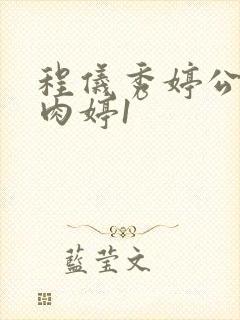 程儀秀婷公
肉婷1
藍莹文